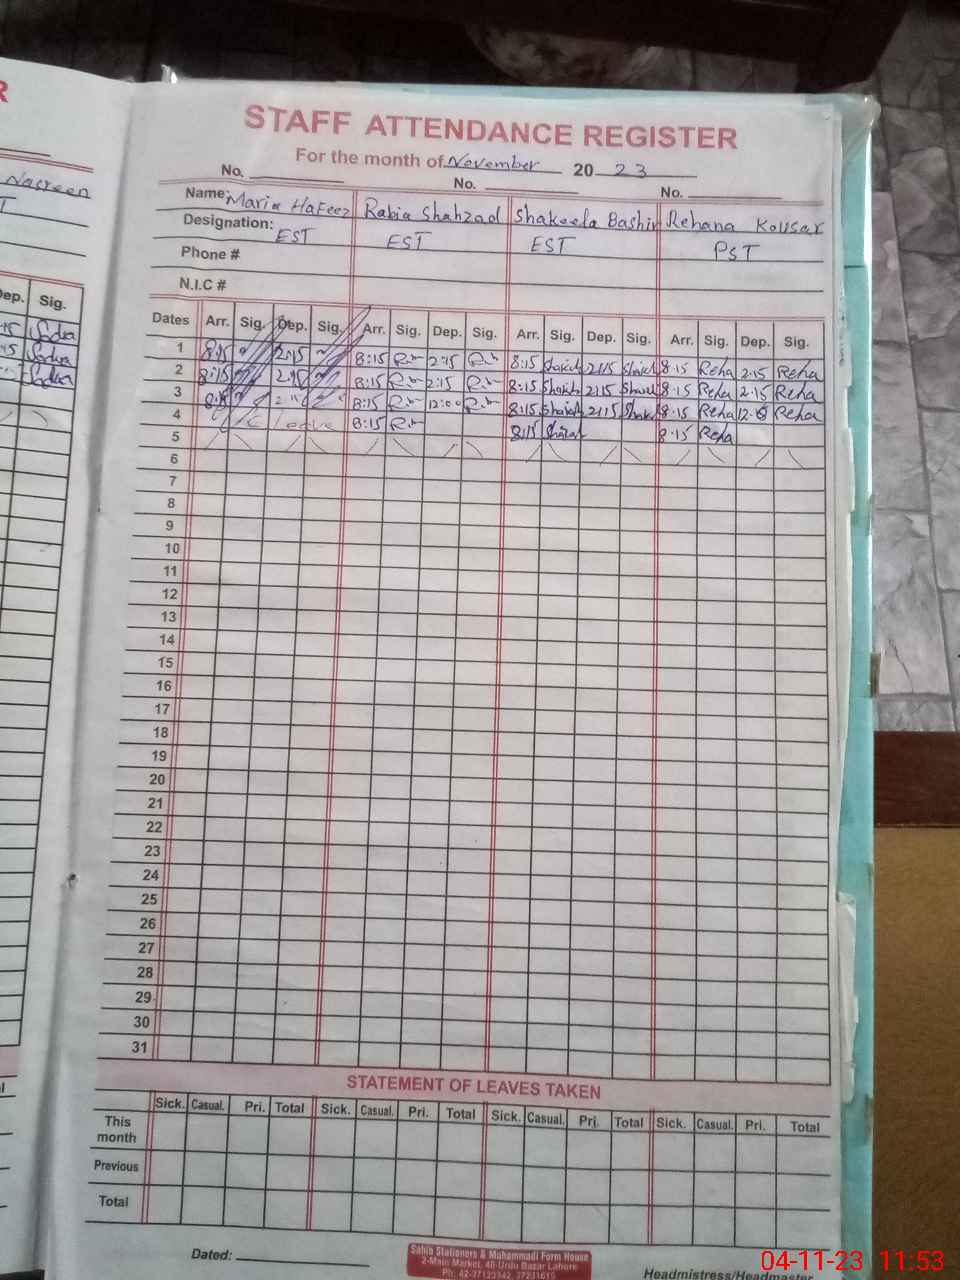 R
Nasreen
T
Dep. Sig.
STAFF ATTENDANCE REGISTER
For the month of November 20 23
No. No. No.
Name: Maria Hafeez Rabia Shahzad Shakeela Bashir Rehana Kousar
Designation: EST EST EST PST
Phone #
N.I.C #
Dates Arr. Sig. Dep. Sig. Arr. Sig. Dep. Sig. Arr. Sig. Dep. Sig. Arr. Sig. Dep. Sig.
1 8:15 2:15 8:15 2:15 8:15 2:15 8:15 Reha 2:15 Reha
2 8:15 2:15 8:15 2:15 8:15 2:15 8:15 Reha 2:15 Reha
3 8:15 2:15 8:15 12:00 8:15 2:15 8:15 Reha Reha
4 Leave 8:15 8:15 8:15 Reha
5
6
7
8
9
10
11
12
13
14
15
16
17
18
19
20
21
22
23
24
25
26
27
28
29
30
31
STATEMENT OF LEAVES TAKEN
Sick. Casual. Pri. Total Sick. Casual. Pri. Total Sick. Casual. Pri. Total Sick. Casual. Pri. Total
This month
Previous
Total
Dated:
Sahib Stationers & Muhammadi Form House
2-Main Market, 40-Urdu Bazar Lahore
Ph: 42-37123342, 37231615
Headmistress/Headmaster
04-11-23 11:53